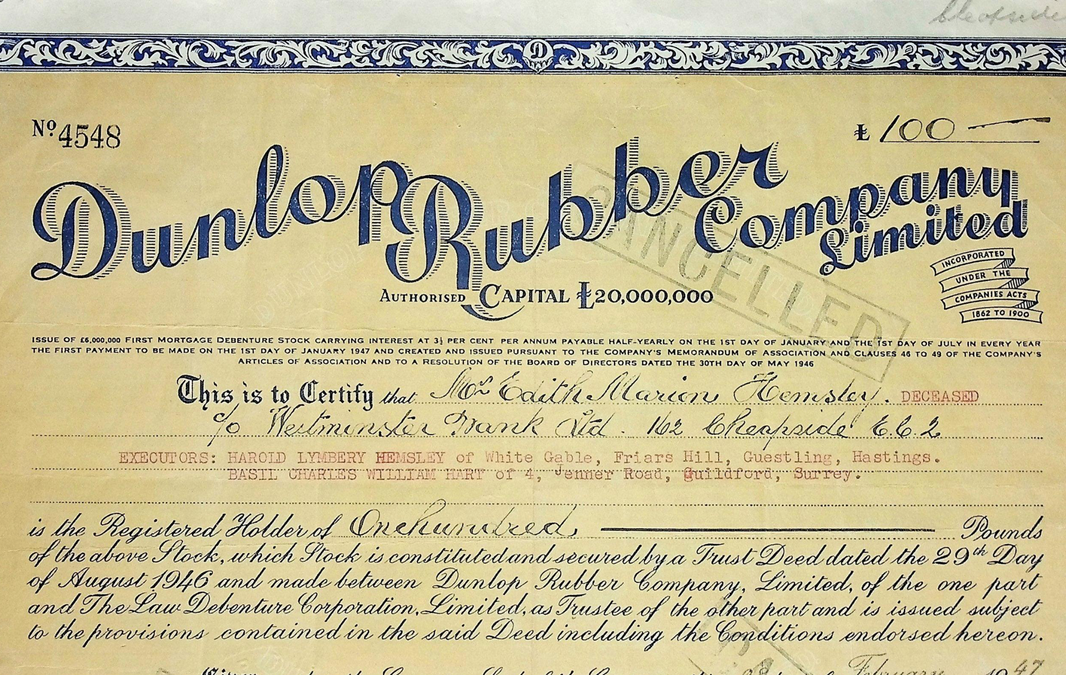 Cheapside
Nº 4548
£ 100
Dunlop Rubber Company Limited
CANCELLED
AUTHORISED CAPITAL £20,000,000
INCORPORATED
UNDER THE
COMPANIES ACTS
1862 TO 1900
ISSUE OF £6,000,000 FIRST MORTGAGE DEBENTURE STOCK CARRYING INTEREST AT 3½ PER CENT PER ANNUM PAYABLE HALF-YEARLY ON THE 1ST DAY OF JANUARY AND THE 1ST DAY OF JULY IN EVERY YEAR
THE FIRST PAYMENT TO BE MADE ON THE 1ST DAY OF JANUARY 1947 AND CREATED AND ISSUED PURSUANT TO THE COMPANY'S MEMORANDUM OF ASSOCIATION AND CLAUSES 46 TO 49 OF THE COMPANY'S
ARTICLES OF ASSOCIATION AND TO A RESOLUTION OF THE BOARD OF DIRECTORS DATED THE 30TH DAY OF MAY 1946
This is to Certify that Mrs Edith Marion Hemsley. DECEASED
c/o Westminster Bank Ltd. 162 Cheapside E.C.2
EXECUTORS: HAROLD LYMBERY HEMSLEY of White Gable, Friars Hill, Guestling, Hastings.
BASIL CHARLES WILLIAM HART of 4, Jenner Road, Guildford, Surrey.
is the Registered Holder of One hundred Pounds
of the above Stock, which Stock is constituted and secured by a Trust Deed dated the 29th Day
of August 1946 and made between Dunlop Rubber Company, Limited, of the one part
and The Law Debenture Corporation, Limited, as Trustee of the other part and is issued subject
to the provisions contained in the said Deed including the Conditions endorsed hereon.
February 1947